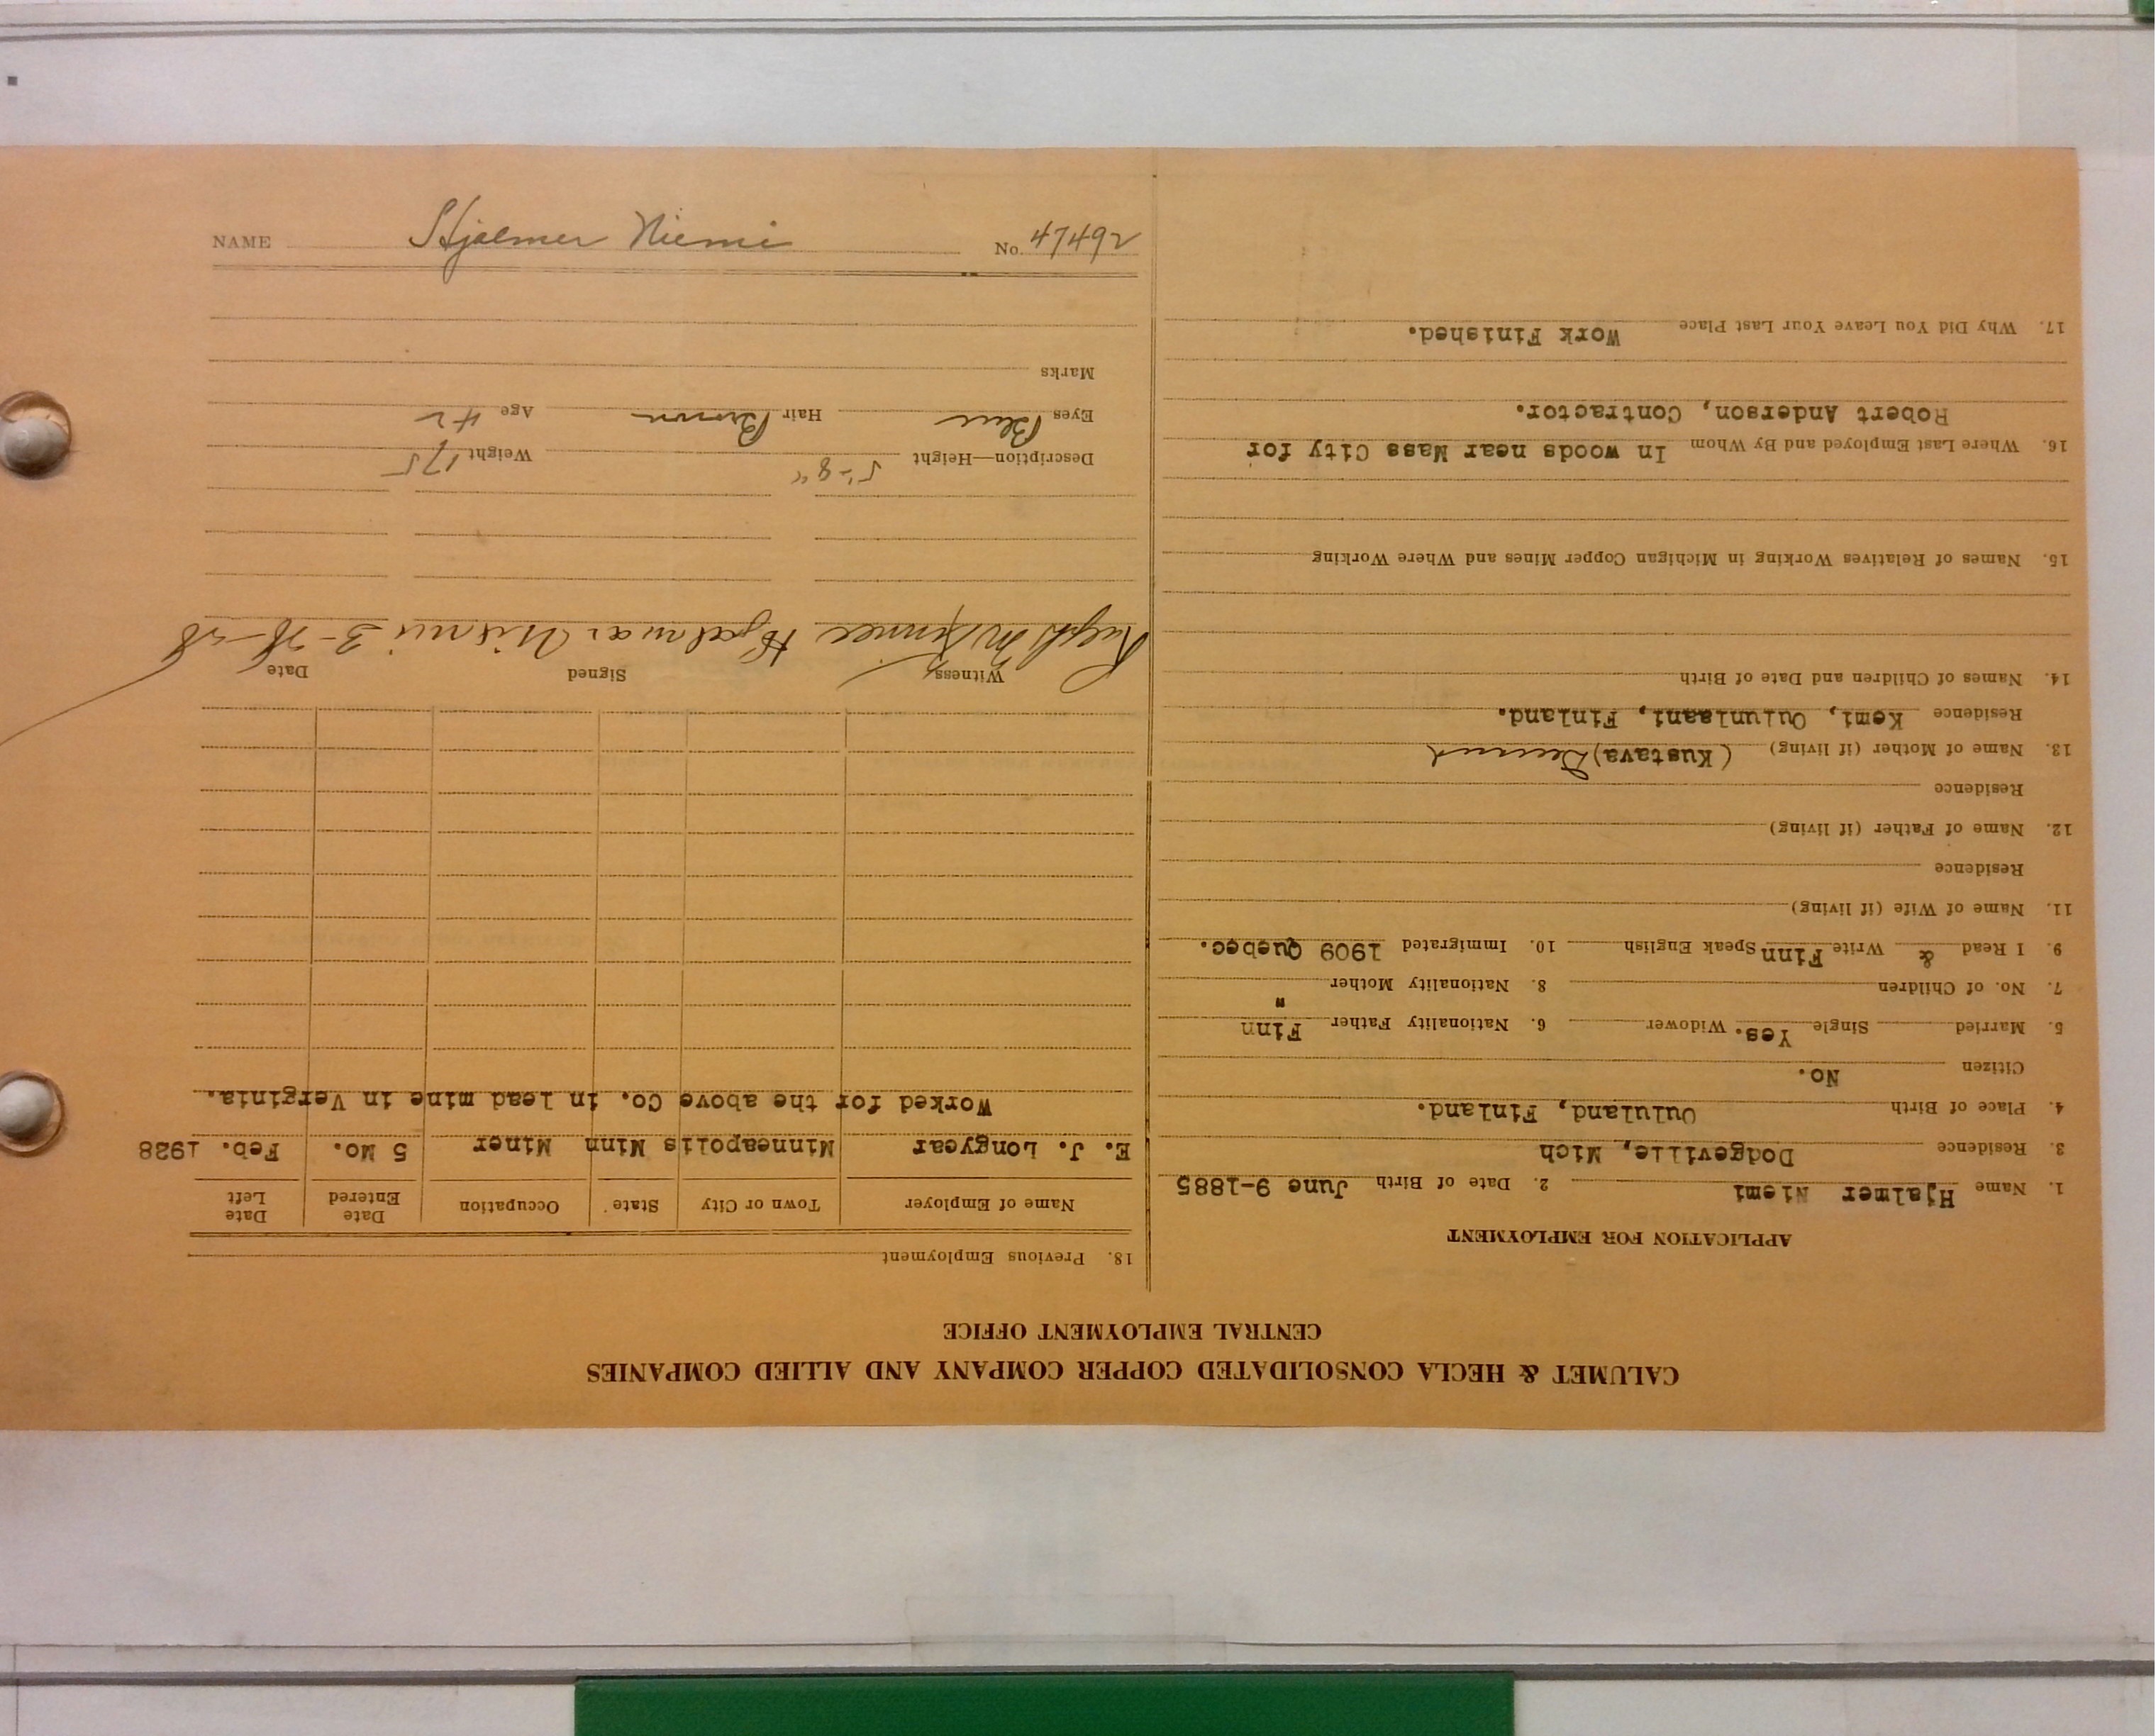 CALUMET & HECLA CONSOLIDATED COPPER COMPANY AND ALLIED COMPANIES
CENTRAL EMPLOYMENT OFFICE
APPLICATION FOR EMPLOYMENT
1. Name Hjalmer Niemi 2. Date of Birth June 9-1885
3. Residence Dodgeville, Mich
4. Place of Birth Oululand, Finland.
Citizen No.
5. Married Single Yes. Widower 6. Nationality Father Finn
7. No. of Children 8. Nationality Mother "
9. I Read & Write Finn Speak English 10. Immigrated 1909 Quebec.
11. Name of Wife (if living)
Residence
12. Name of Father (if living)
Residence
13. Name of Mother (if living) (Kustava)
Residence Kemi, Oulunlaani, Finland.
14. Names of Children and Date of Birth
15. Names of Relatives Working in Michigan Copper Mines and Where Working
16. Where Last Employed and By Whom In woods near Mass City for
Robert Anderson, Contractor.
17. Why Did You Leave Your Last Place Work Finished.
18. Previous Employment
Name of Employer Town or City State Occupation Date Entered Date Left
E. J. Longyear Minneapolis Minn Miner 5 Mo. Feb. 1928
Worked for the above Co. in lead mine in Verginia.
Witness Signed Date
Hjalmar Niemi
Description—Height 5'-8" Weight 175
Eyes Blue Hair Brown Age 42
Marks
NAME Hjalmer Niemi No. 47492